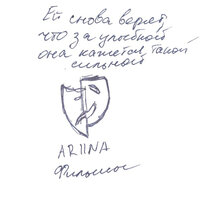 Ей снова верят,
что за улыбкой
она кажется такой
сильной
ARIINA